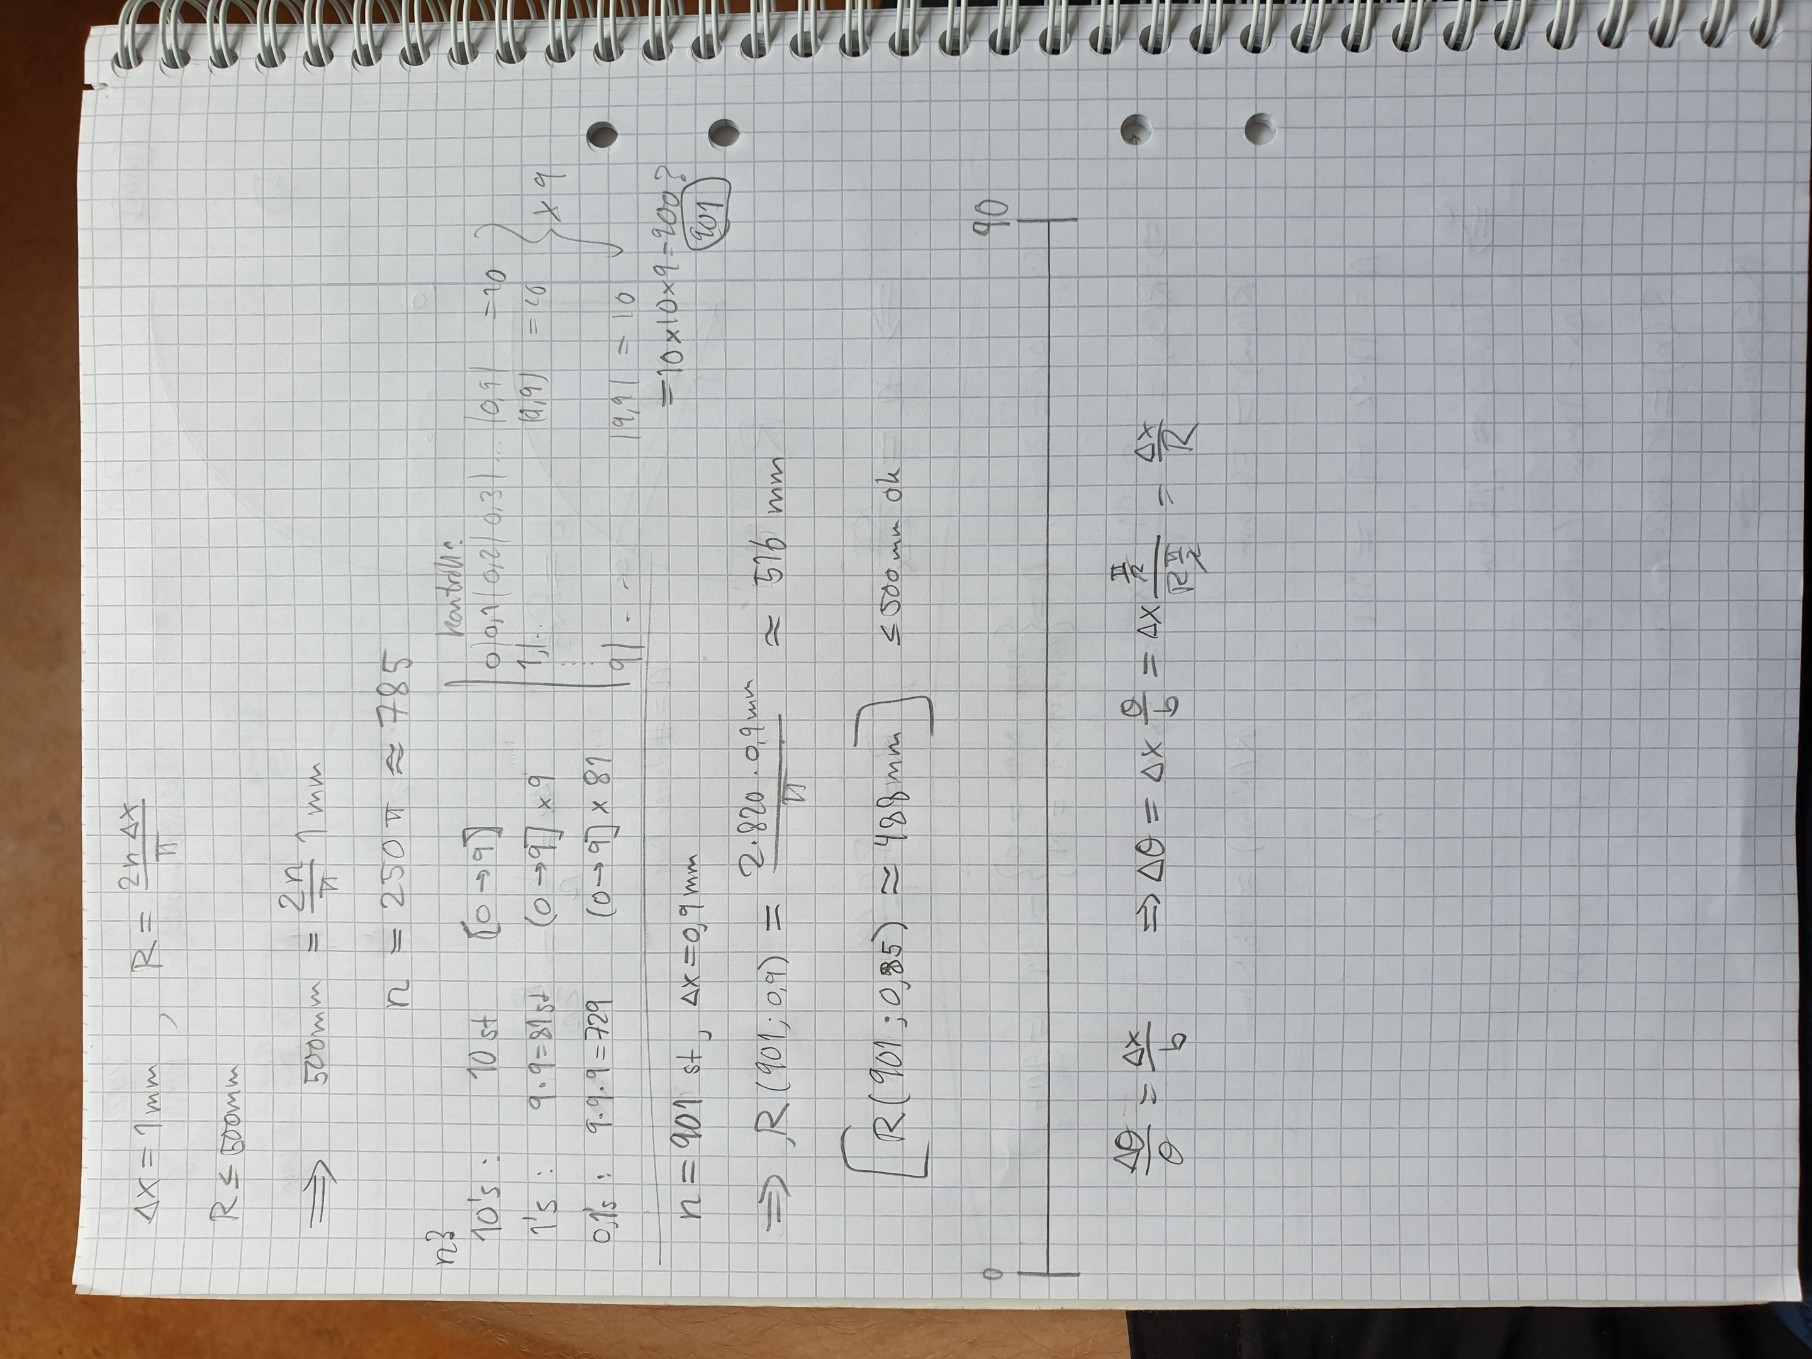 Δx = 1 mm , R = 2n Δx / π
R ≤ 500mm
⇒ 500mm = 2n/π 1 mm
n = 250 π ≈ 785
n3
10's : 10 st [0 → 9]
1's : 9·9=81 st (0 → 9] × 9
0,1's : 9·9·9=729 (0 → 9] × 81
Kontroll:
0|0,1|0,2|0,3|... |0,9| =10
1,|.. |1,9| = 10
9| - - |9,9| = 10
} × 9
= 10×10×9=900?
901
n = 901 st, Δx=0,9 mm
⇒ R(901; 0,9) = 2·820·0,9mm / π ≈ 516 mm
[R(901; 0,85) ≈ 488mm] ≤ 500mm ok
0 90
Δθ/θ = Δx/b ⇒ Δθ = Δx θ/b = Δx (π/2)/(R π/2) = Δx/R